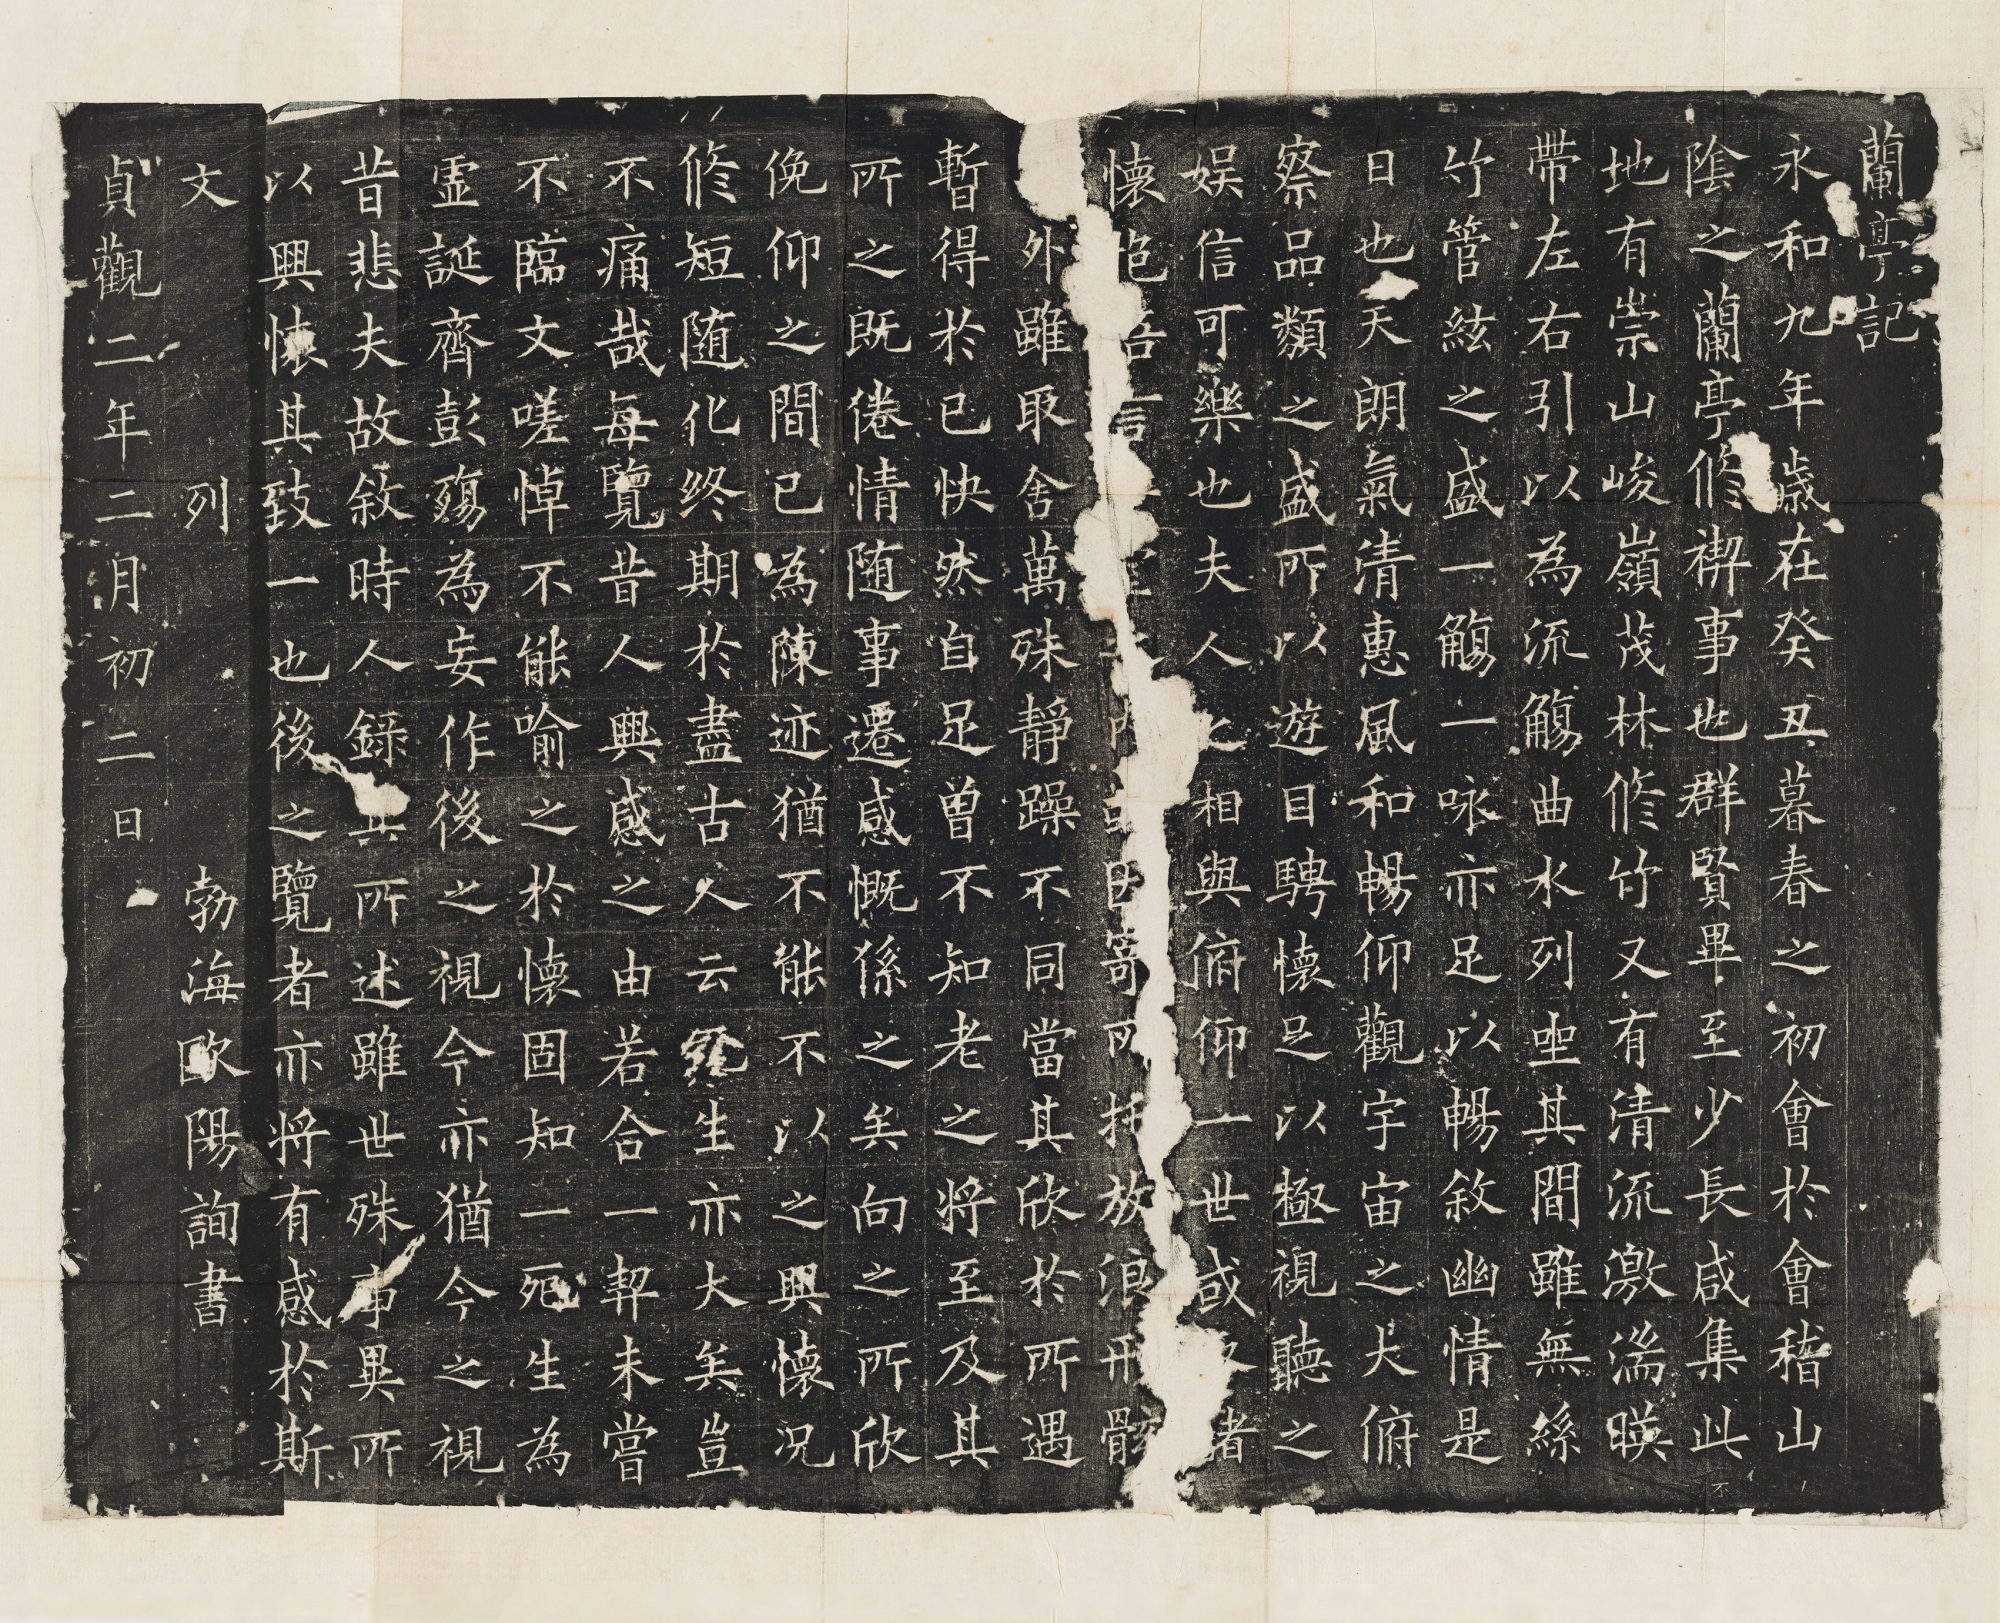 蘭亭記
永和九年歲在癸丑暮春之初會於會稽山
陰之蘭亭修禊事也群賢畢至少長咸集此
地有崇山峻嶺茂林修竹又有清流激湍暎
帶左右引以為流觴曲水列坐其間雖無絲
竹管絃之盛一觴一咏亦足以暢敘幽情是
日也天朗氣清惠風和暢仰觀宇宙之大俯
察品類之盛所以遊目騁懷足以極視聽之
娛信可樂也夫人之相與俯仰一世或者
懷抱言寄所托放浪形骸
外雖取舍萬殊靜躁不同當其欣於所遇
暫得於己快然自足曾不知老之將至及其
所之既倦情随事遷感慨係之矣向之所欣
俛仰之間已為陳迹猶不能不以之興懷況
修短随化終期於盡古人云死生亦大矣豈
不痛哉每覽昔人興感之由若合一契未嘗
不臨文嗟悼不能喻之於懷固知一死生為
虛誕齊彭殤為妄作後之視今亦猶今之視
昔悲夫故敘時人錄其所述雖世殊事異所
以興懷其致一也後之覽者亦將有感於斯
文 列 勃海歐陽詢書
貞觀二年二月初二日